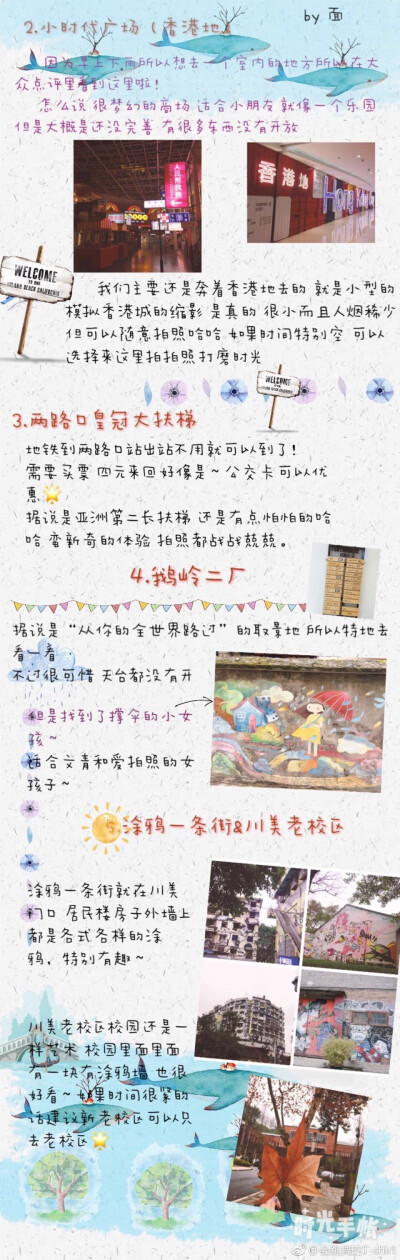 by 面
2.小时代广场（香港地）
因为早上下雨所以想去一个室内的地方所以在大
众点评里看到这里啦！
怎么说 很梦幻的商场 适合小朋友 就像一个乐园
但是大概是还没完善 有很多东西没有开放
香港地
WELCOME
我们主要还是奔着香港地去的 就是小型的
模拟香港城的缩影 是真的 很小而且人烟稀少
但可以随意拍照哈哈 如果时间特别空 可以
选择来这里拍拍照 打磨时光
WELCOME
3.两路口皇冠大扶梯
地铁到两路口站出站不用就可以到了！
需要买票 四元来回好像是~ 公交卡可以优
惠
据说是亚洲第二长扶梯 还是有点怕怕的哈
哈 蛮新奇的体验 拍照都战战兢兢。
4.鹅岭二厂
据说是“从你的全世界路过”的取景地 所以特地去
看一看.
不过很可惜 天台都没有开
但是找到了撑伞的小女
孩~
适合文青和爱拍照的女
孩子~
5.涂鸦一条街&川美老校区
涂鸦一条街就在川美
门口 居民楼房子外墙上
都是各式各样的涂
鸦，特别有趣~
川美老校区校园还是一
样艺术 校园里面里面
有一块有涂鸦墙 也很
好看~ 如果时间很紧的
话建议新老校区可以只
去老校区
时光手帐